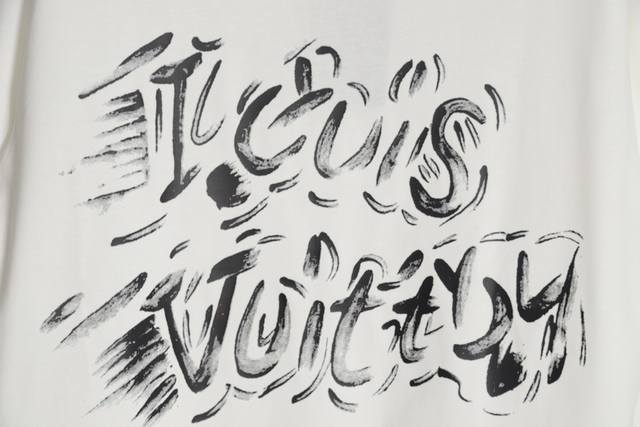 Louis
Vuitton